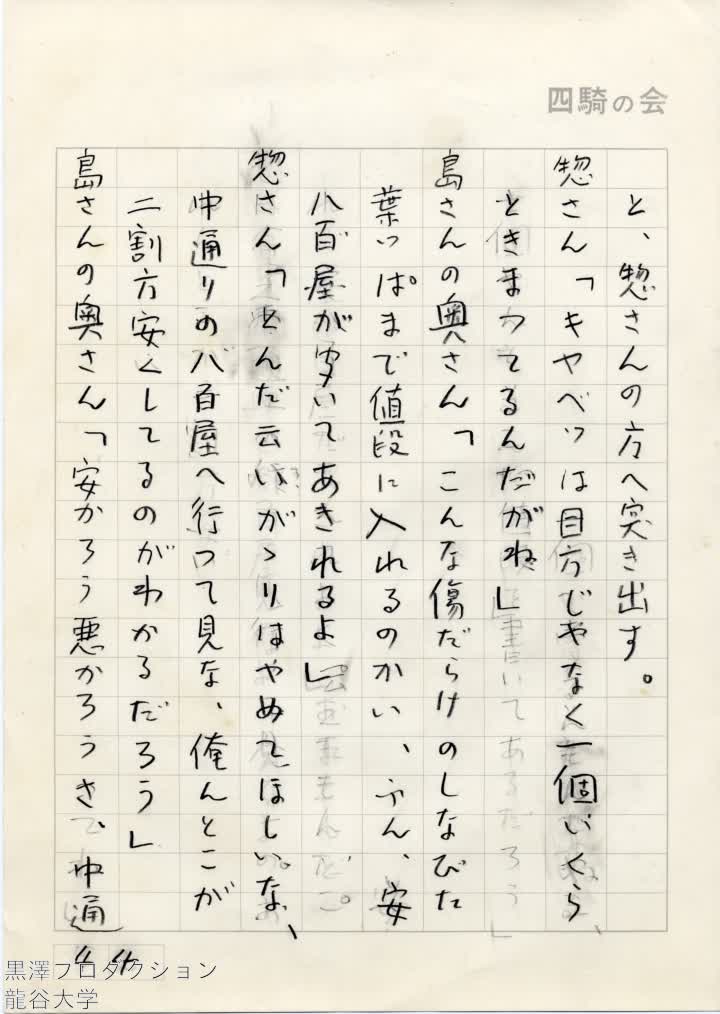 四騎の会
と、惣さんの方へ突き出す。
惣さん「キャベツは目方じゃなく一個いくら
ときまってるんだがね」
島さんの奥さん「こんな傷だらけのしなびた
葉っぱまで値段に入れるのかい、ふん、安
八百屋が聞いてあきれるよ」
惣さん「とんだ云いがゝりはやめてほしいな、
中通りの八百屋へ行って見な、俺んとこが
二割方安くしてるのがわかるだろう」
島さんの奥さん「安かろう悪かろうさで中通
44
黒澤プロダクション
龍谷大学